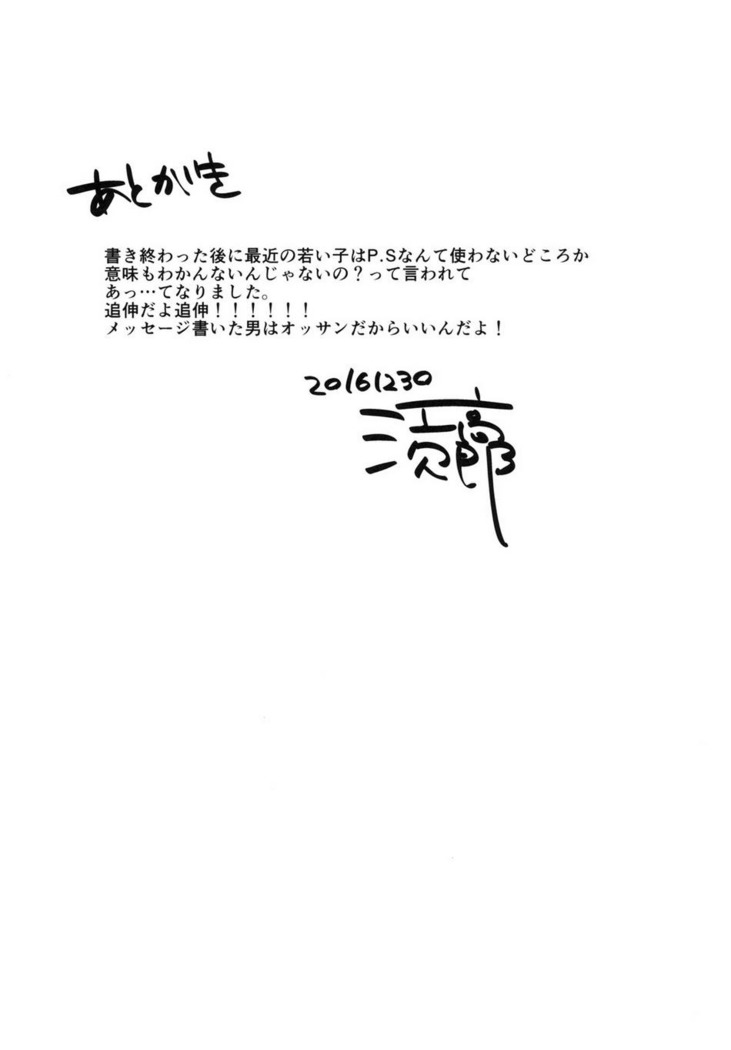 あとがき
書き終わった後に最近の若い子はP.Sなんて使わないどころか
意味もわかんないんじゃないの？って言われて
あっ…てなりました。
追伸だよ追伸！！！！！！
メッセージ書いた男はオッサンだからいいんだよ！
20161230
三次郎